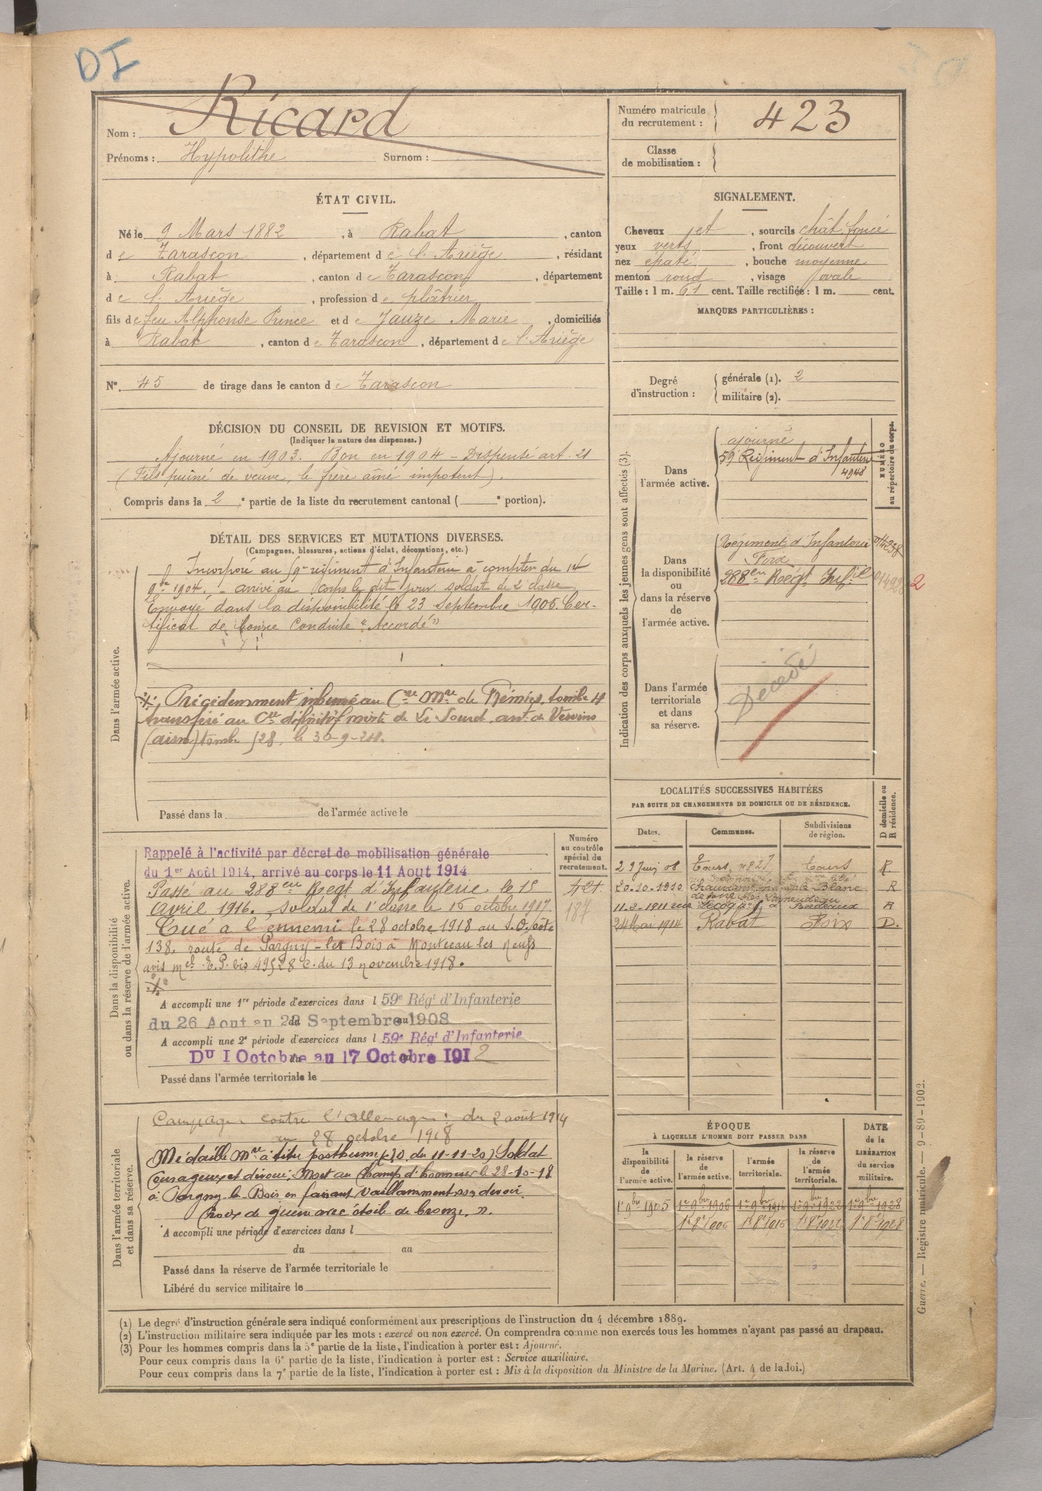 DI
Nom : Ricard
Prénoms : Hypolithe Surnom :
Numéro matricule du recrutement : 423
Classe de mobilisation :
ÉTAT CIVIL.
Né le 9 Mars 1882, à Rabat, canton
d e Tarascon, département d e l'Ariège, résidant
à Rabat, canton d e Tarascon, département
d e l'Ariège, profession d e plâtrier
fils d e feu Alphonse Prince et d e Jauze Marie, domiciliés
à Rabat, canton d e Tarascon, département d e l'Ariège
N° 45 de tirage dans le canton d e Tarascon
SIGNALEMENT.
Cheveux et, sourcils chât foncé
yeux verts, front découvert
nez épaté, bouche moyenne
menton rond, visage ovale
Taille : 1 m. 61 cent. Taille rectifiée : 1 m. cent.
MARQUES PARTICULIÈRES :
Degré d'instruction : générale (1). 2
militaire (2).
DÉCISION DU CONSEIL DE REVISION ET MOTIFS.
(Indiquer la nature des dispenses.)
Ajourné en 1903. Bon en 1904 - Dispensé art. 21
(Fils puiné de veuve, le frère aîné impotent).
Compris dans la 2 e partie de la liste du recrutement cantonal ( e portion).
DÉTAIL DES SERVICES ET MUTATIONS DIVERSES.
(Campagnes, blessures, actions d'éclat, décorations, etc.)
Dans l'armée active.
Incorporé au 59e régiment d'Infanterie à compter du 14
9bre 1904. - arrivé au corps le dit jour soldat de 2e classe
Envoyé dans la disponibilité le 23 Septembre 1905. Cer-
tificat de bonne Conduite "Accordé"
Précédemment inhumé au Cre Mre de Rémies, tombe 4
transféré au Cre définitif mixte de Le Sourd, arrt de Vervins
(aisne) tombe 528, le 30-9-21.
Passé dans la de l'armée active le
Indication des corps auxquels les jeunes gens sont affectés (3).
NUMÉRO au répertoire du corps.
Dans l'armée active.
ajourné
59 Régiment d'Infanterie
4948
Dans la disponibilité ou dans la réserve de l'armée active.
Régiment d'Infanterie
Foix
288e Régt Infie
2
Dans l'armée territoriale et dans sa réserve.
Décédé
LOCALITÉS SUCCESSIVES HABITÉES
PAR SUITE DE CHANGEMENTS DE DOMICILE OU DE RÉSIDENCE.
D domicile ou R résidence.
Dates. Communes. Subdivisions de région.
23 Juin 08 Tours Tours R
20.10.1910 Le Blanc R
11.2.1911 Bordeaux R
24 Mai 1914 Rabat Foix D.
Dans la disponibilité ou dans la réserve de l'armée active.
Numéro au contrôle spécial du recrutement.
187
Rappelé à l'activité par décret de mobilisation générale
du 1er Août 1914, arrivé au corps le 11 Aout 1914
Passé au 288eme Regt d'Infanterie le 1er
Avril 1916. Soldat de 1e classe le 15 octobre 1917.
Tué à l'ennemi le 28 octobre 1918 au S.O. côte
138, route de Pargny-les Bois à Monceau les Neufs
avis mel E.P. bis 49528 C. du 13 novembre 1918.
A accompli une 1re période d'exercices dans l 59e Régt d'Infanterie
du 26 Aout au 22 Septembre 1908
A accompli une 2e période d'exercices dans l 59e Régt d'Infanterie
Du 1 Octobre au 17 Octobre 1912
Passé dans l'armée territoriale le
Dans l'armée territoriale et dans sa réserve.
Campagne contre l'Allemagne : du 2 août 1914
au 28 octobre 1918
Médaille Mre à titre posthume (JO du 11-11-20) Soldat
courageux et dévoué. Mort au Champ d'honneur le 28-10-18
à Pargny les Bois en faisant vaillamment son devoir.
Croix de guerre avec étoile de bronze.".
A accompli une période d'exercices dans l
du au
Passé dans la réserve de l'armée territoriale le
Libéré du service militaire le
ÉPOQUE
À LAQUELLE L'HOMME DOIT PASSER DANS
DATE de la LIBÉRATION du service militaire.
la disponibilité de l'armée active. la réserve de l'armée active. l'armée territoriale. la réserve de l'armée territoriale.
1er 9bre 1905 1er 9bre 1906 1er 9bre 1916 1er 9bre 1922 1er 9bre 1928
1er 8bre 1906 1er 8bre 1916 1er 8bre 1922 1er 8bre 1928
Guerre. — Registre matricule. — 9-89-1902.
(1) Le degré d'instruction générale sera indiqué conformément aux prescriptions de l'instruction du 4 décembre 1889.
(2) L'instruction militaire sera indiquée par les mots : exercé ou non exercé. On comprendra comme non exercés tous les hommes n'ayant pas passé au drapeau.
(3) Pour les hommes compris dans la 5e partie de la liste, l'indication à porter est : Ajourné.
Pour ceux compris dans la 6e partie de la liste, l'indication à porter est : Service auxiliaire.
Pour ceux compris dans la 7e partie de la liste, l'indication à porter est : Mis à la disposition du Ministre de la Marine. (Art. 4 de la loi.)